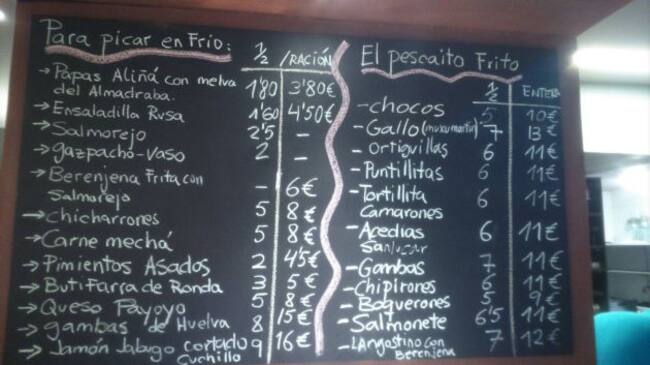 Para picar en Frio: 1/2 /RACIÓN
→ Papas Aliñá con melva
del Almadraba. 1'80 3'80€
→ Ensaladilla Rusa 1'60 4'50€
→ Salmorejo 2'5 –
→ gazpacho-vaso 2 –
→ Berenjena Frita con
Salmorejo – 6€
→ Chicharrones 5 8€
→ Carne mechá 5 8€
→ Pimientos Asados 2 4'5€
→ Butifarra de Ronda 3 5€
→ Queso Payoyo 5 8€
→ gambas de Huelva 8 15€
→ Jamón Jabugo cortado
Cuchillo 9 16€
El pescaito Frito
1/2 ENTERA
- chocos 5 10€
- Gallo 7 13€
- ortiguillas 6 11€
- Puntillitas 6 11€
- Tortillita
Camarones 6 11€
- Acedias
Sanlucar 6 11€
- Gambas 7 11€
- Chipirones 6 11€
- Boquerones 5 9€
- Salmonete 6'5 11€
- Langostino con
Berenjena 7 12€